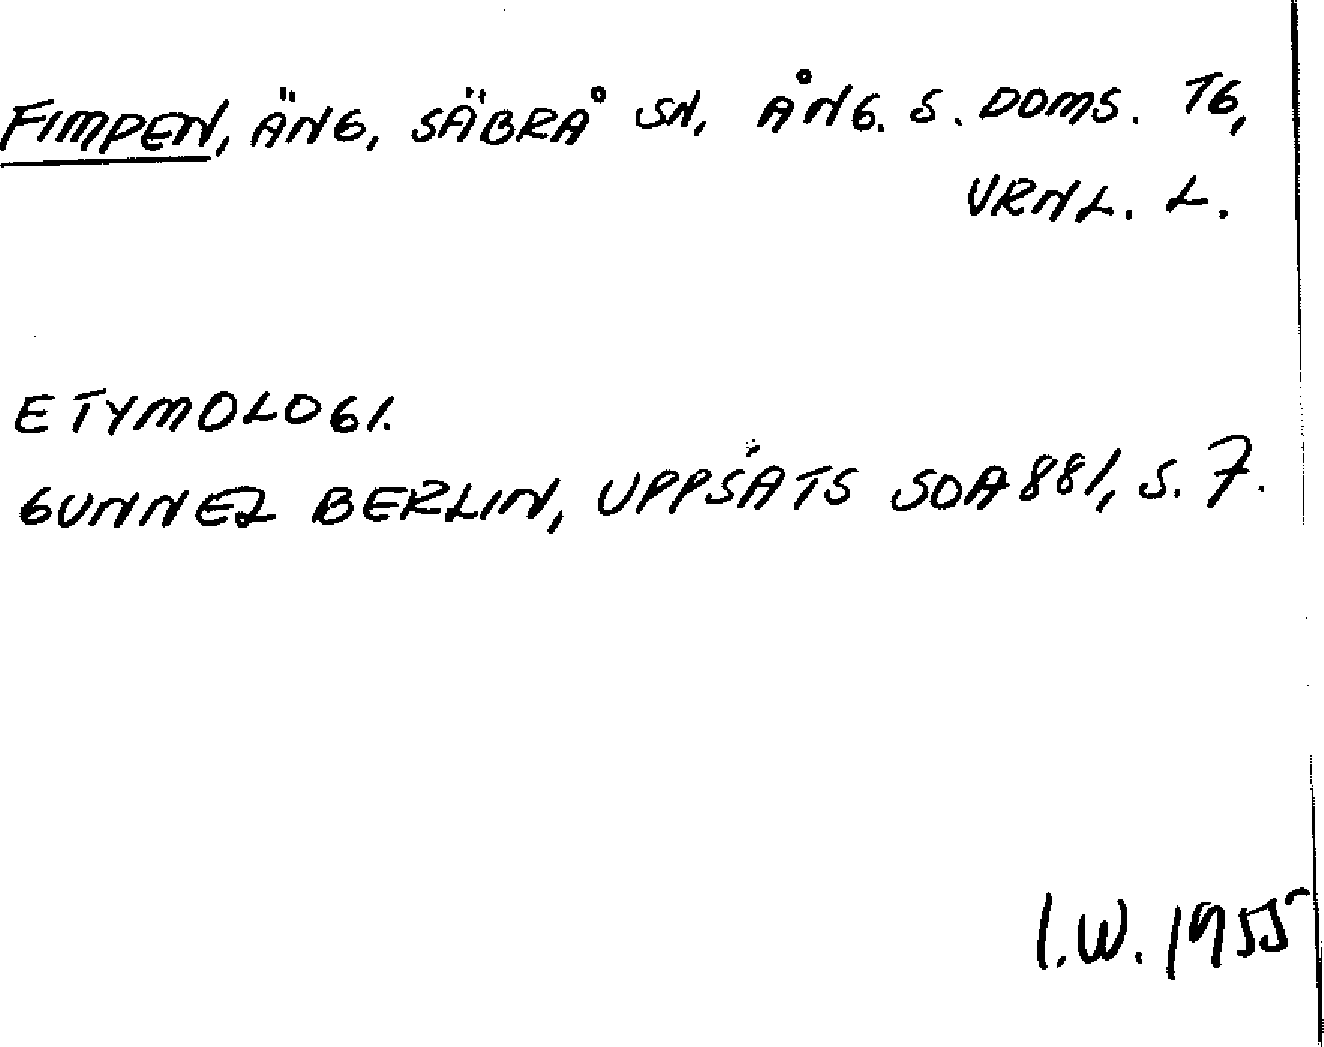 FIMPEN, ÄNG, SÄBRÅ SN, ÅNG. S. DOMS. TG,
VRNL. L.
ETYMOLOGI.
GUNNEL BERLIN, UPPSATS SOA 881, S. 7.
I.W. 1955